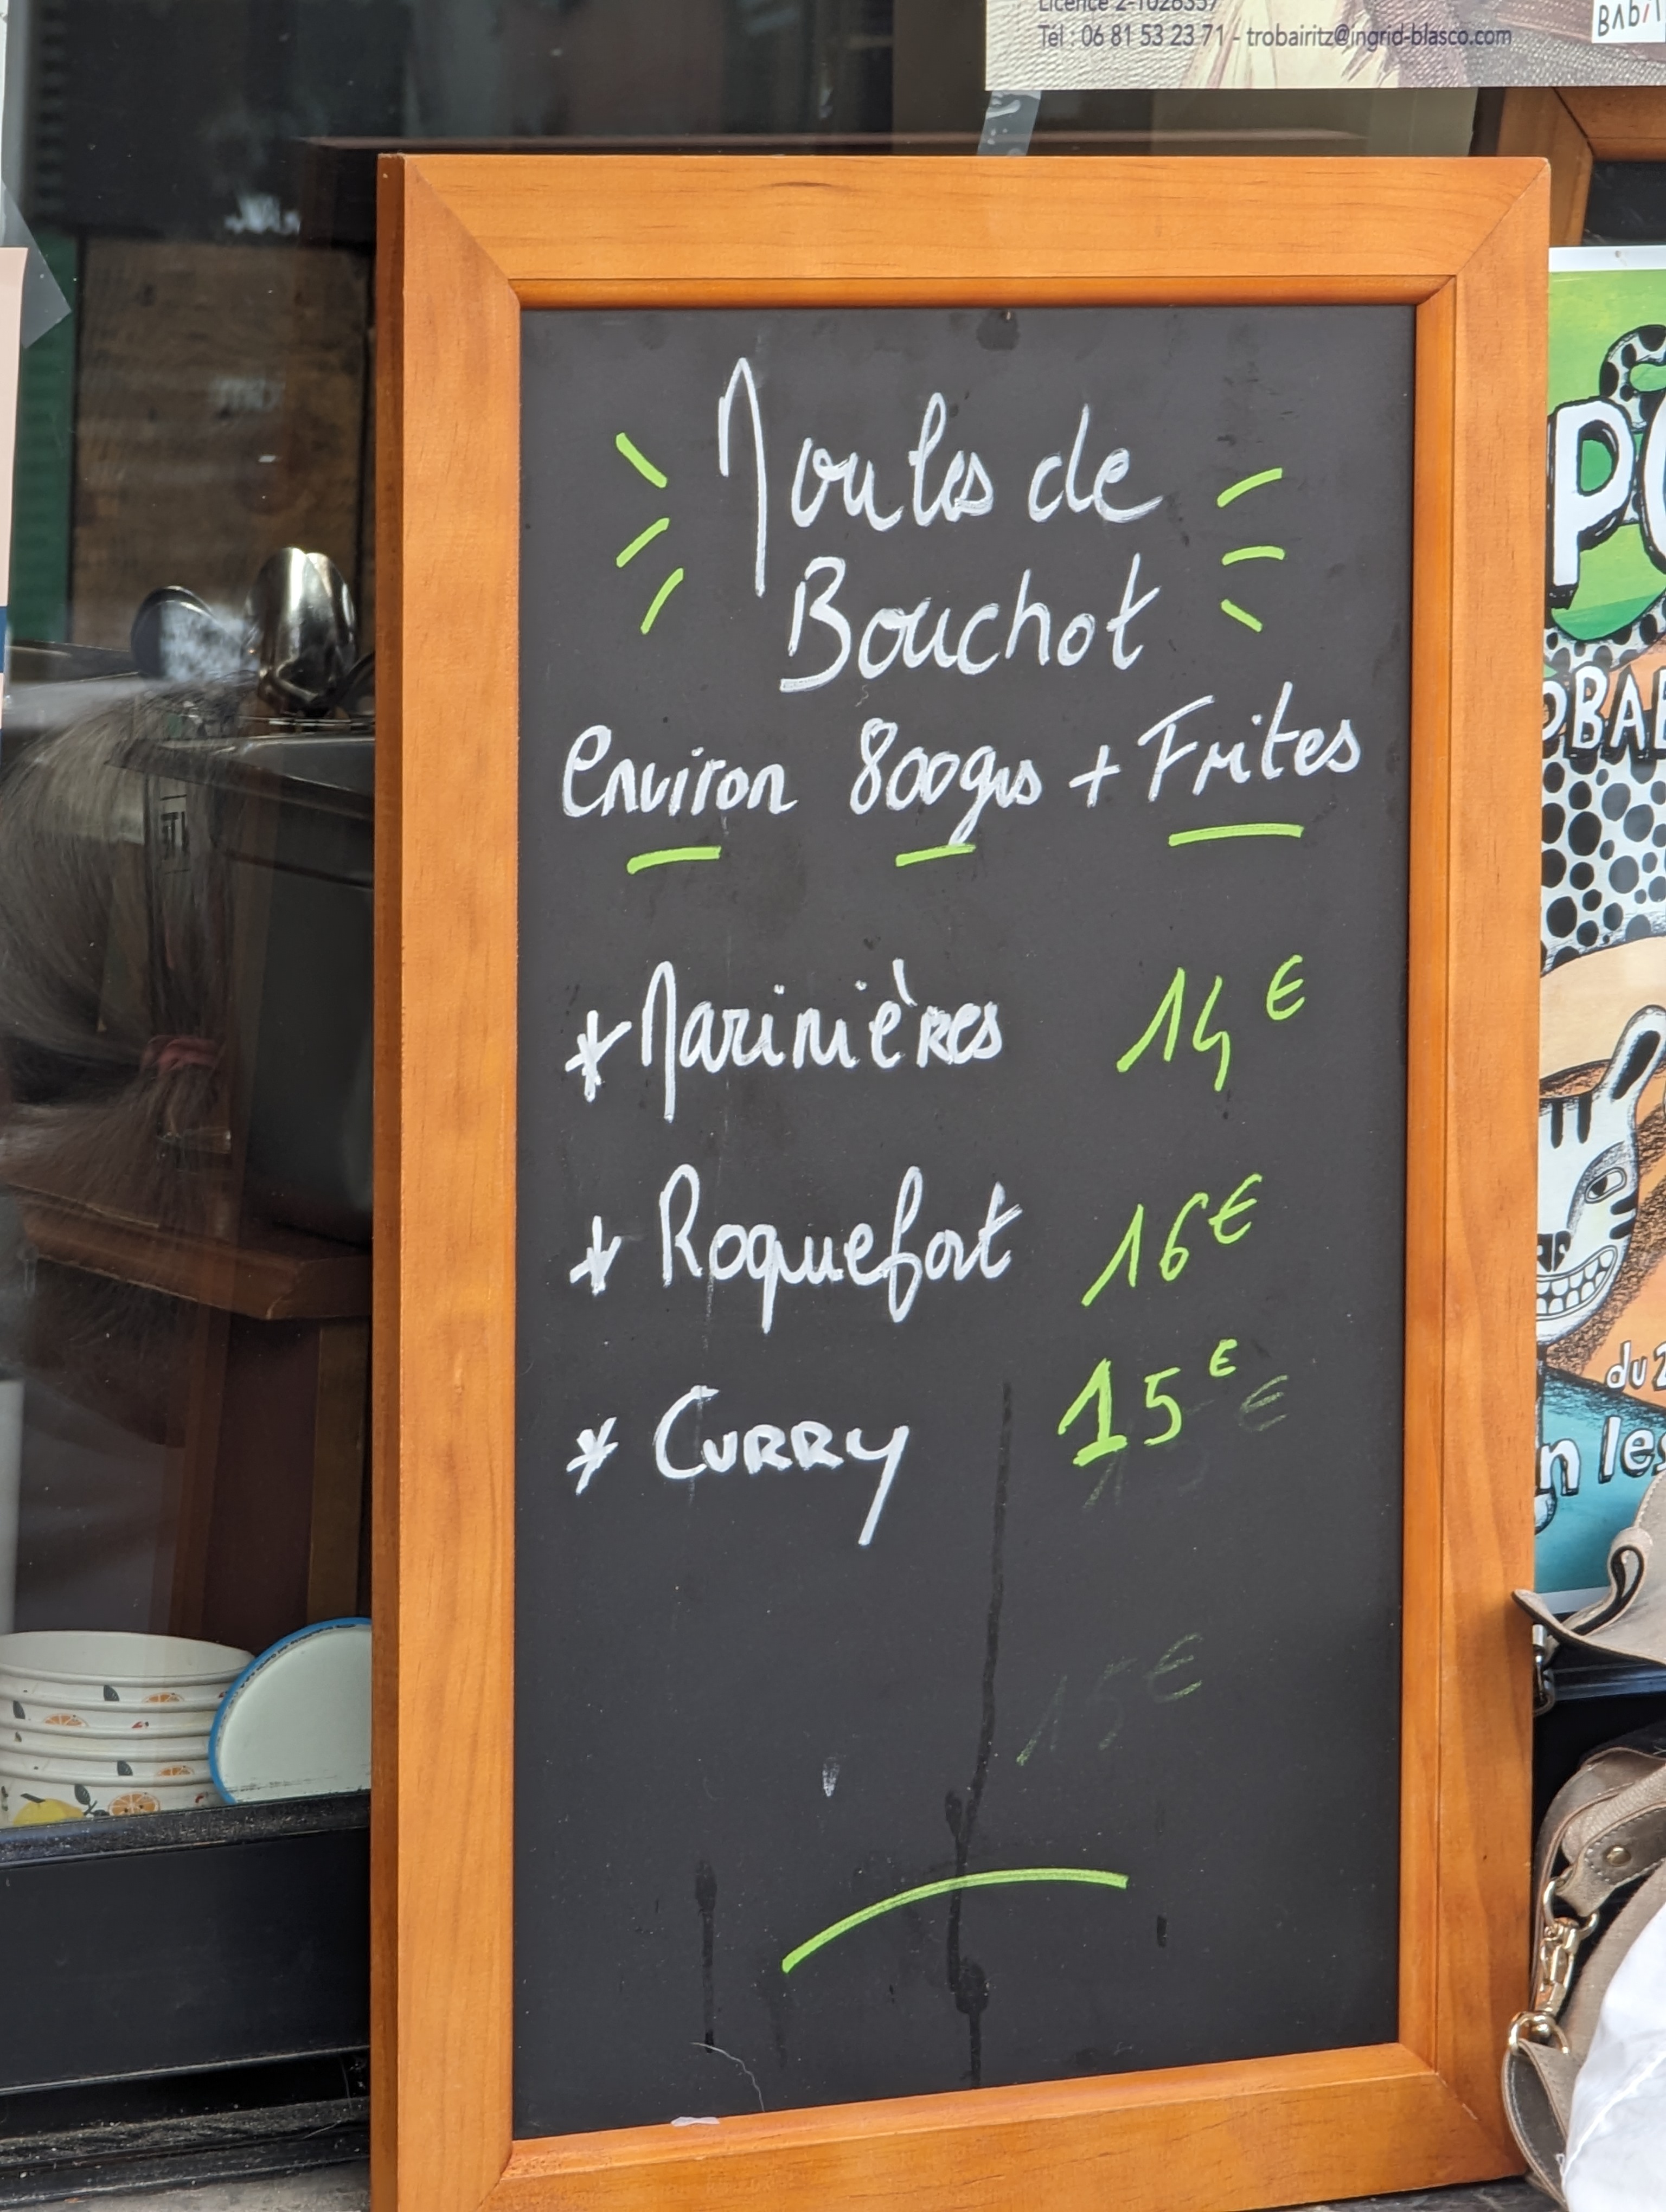 Licence 2-1028357
Tel : 06 81 53 23 71 - trobairitz@ingrid-blasco.com
BAbil
Moules de
Bouchot
Environ 800grs + Frites
* Marinières 14€
* Roquefort 16€
* CURRY 15€
15€
du 2
n les